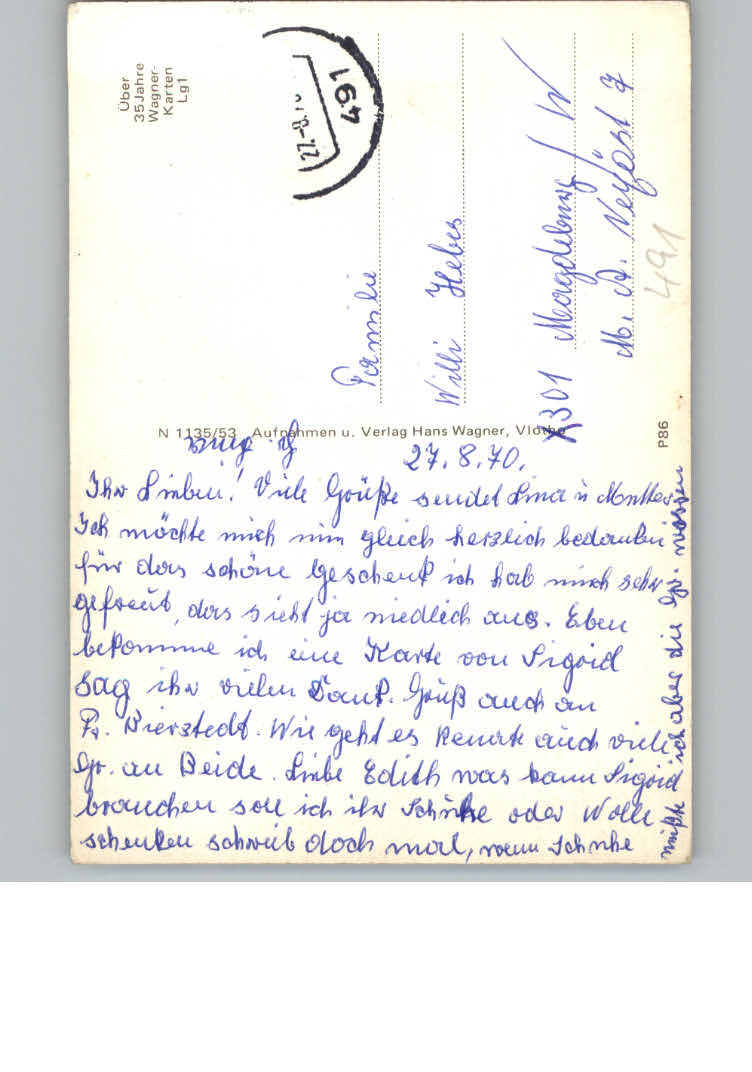 Über
35 Jahre
Wagner-
Karten
Lg1
491
27.-8.70
Familie
Willi Heber
X301 Magdeburg / W
491
N 1135/53 Aufnahmen u. Verlag Hans Wagner, Vlotho
P86
27. 8. 70.
Ihr Lieben! Viele Grüße sendet Lina u Mutter
Ich möchte mich nun gleich herzlich bedanken
für das schöne Geschenk ich hab mich sehr
gefreut, das sieht ja niedlich aus. Eben
bekomme ich eine Karte von Sigrid
sag ihr vielen Dank. Grüß auch an
Fr. Bierstedt. Wie geht es Renate auch viele
Gr. an Beide. Liebe Edith was kann Sigrid
brauchen soll ich ihr Schuhe oder Wolle
schenken schreib doch mal, wenn Schuhe
müßte ich aber die Gr. wissen